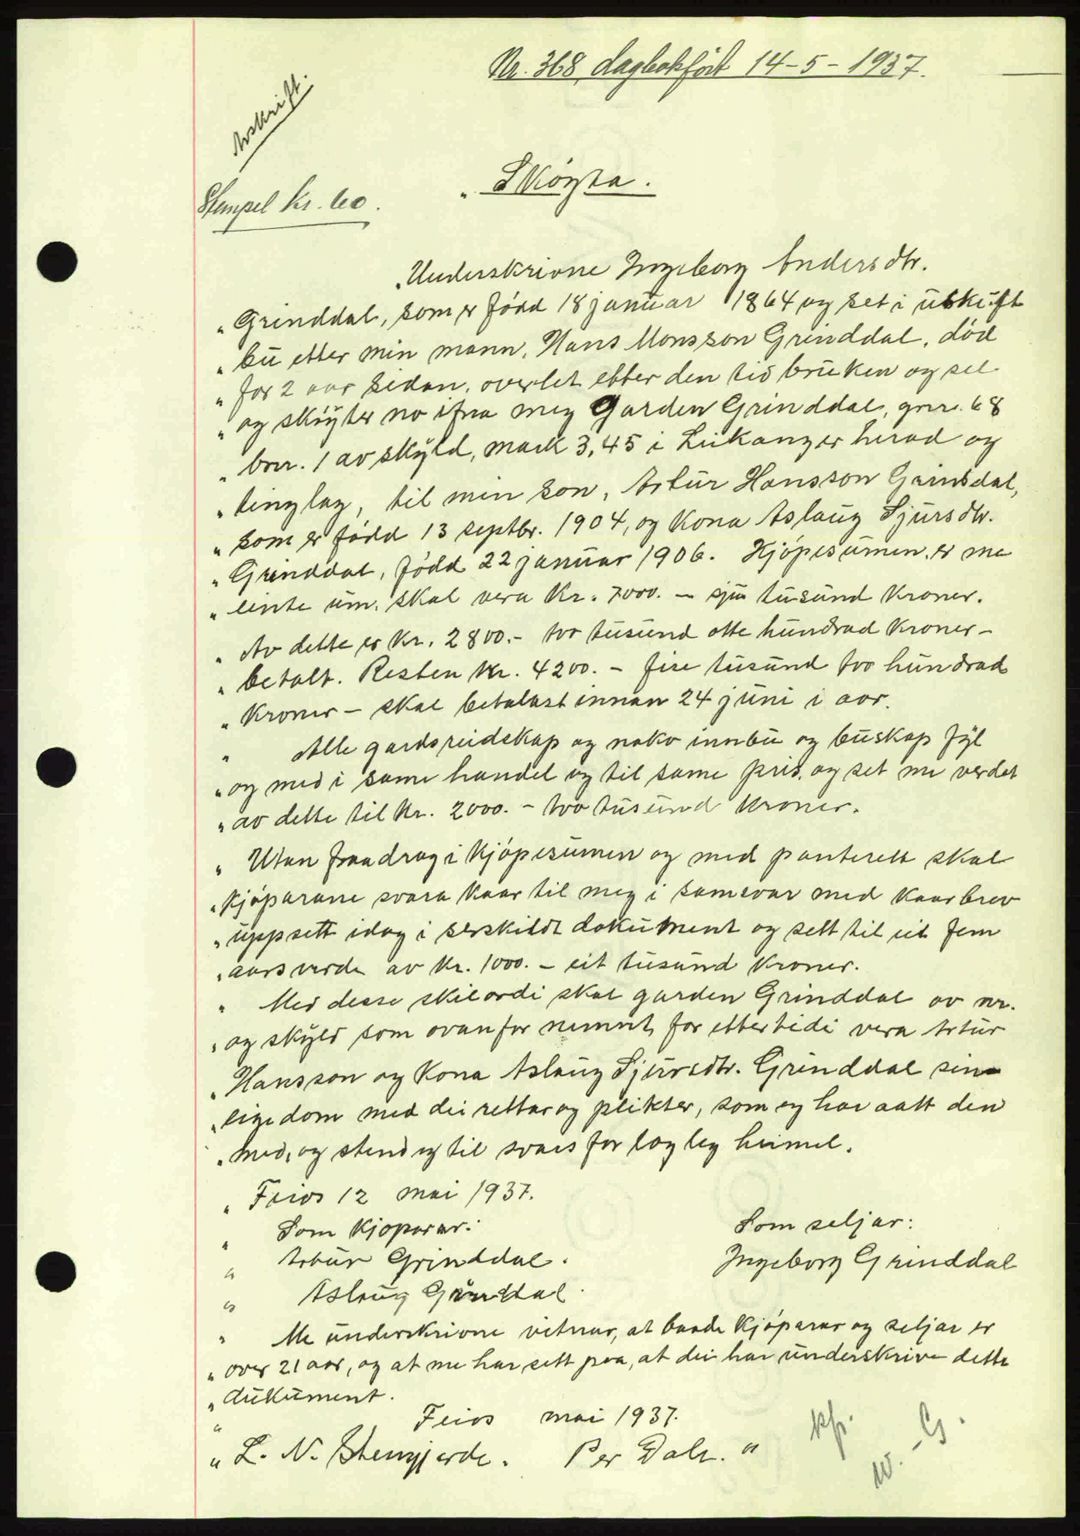 Nr. 368, dagbokført 14-5-1937.
Avskrift.
Stempel kr. 60.
" Skøyta.
"Underskrivne Ingeborg Andersdtr.
" Grinddal, som er fødd 18 januar 1864 og set i uskift
" bu etter min mann, Hans Monsson Grinddal, død
" for 2 aar sidan, overlet etter den tid bruken og sel
" og skøyter no ifraa meg Garden Grinddal, gnr. 68
" bnr. 1 av skyld, mark 3,45 i Leikanger herad og
" tinglag, til min son, Artur Hansson Grinddal,
" som er fødd 13 septbr. 1904, og kona Aslaug Sjursdtr.
" Grinddal, fødd 22 januar 1906. Kjøpesumen, er me
" einte um, skal vera kr. 7000. - sju tusund kroner.
" Av dette er kr. 2800.- tvo tusund otte hundrad kroner -
" betalt. Resten kr. 4200. - fire tusund tvo hundrad
" kroner - skal betalast innan 24 juni i aar.
" Alle gardsreidskap og noko innbu og buskap fyl
" og med i same handel og til same pris, og set me verdet
" av dette til kr. 2000. - tvo tusund kroner.
" Utan fraadrag i kjøpesumen og med panterett skal
" kjøparane svara kaar til meg i samsvar med kaarbrev
" uppsett idag i serskildt dokument og sett til eit fem
" aarsverde av kr. 1000. - eit tusund kroner.
" Med desse skilordi skal garden Grinddal av nr.
" og skyld som ovanfor nemnt, for ettertidi vera Artur
" Hansson og kona Aslaug Sjursdtr. Grinddal sin
" eigedom med dei rettar og plikter, som eg har aatt den
" med, og stend eg til svars for lagleg heimel.
" Feios 12 mai 1937.
" Som kjøparar: Som seljar:
" Artur Grinddal. Ingeborg Grinddal
" Aslaug Grinddal.
" Me underskrivne vitnar, at baade kjøparar og seljar er
" over 21 aar, og at me har sett paa, at dei har underskrive dette
" dukument.
" Feios mai 1937.
" L. N. Stengjerde. Per Dale. "
kp.